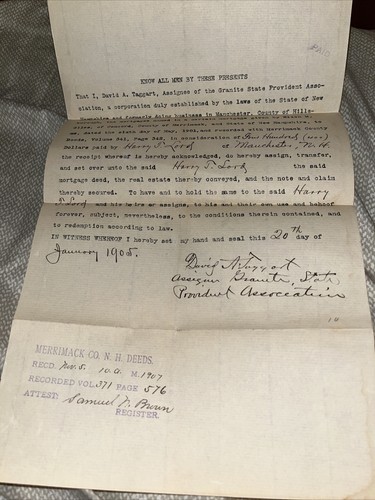 KNOW ALL MEN BY THESE PRESENTS
That I, David A. Taggart, Assignee of the Granite State Provident Asso-
ciation, a corporation duly established by the laws of the State of New
Hampshire and formerly doing business in Manchester, County of Hills-
of Merrimack,
dated the sixth day of May, 1891, and recorded with Merrimack County
Deeds, Volume Page in consideration of Four Hundred (400)
Dollars paid by Harry T. Lord of Manchester, N.H.
the receipt whereof is hereby acknowledged, do hereby assign, transfer,
and set over unto the said Harry T. Lord the said
mortgage deed, the real estate thereby conveyed, and the note and claim
thereby secured. To have and to hold the same to the said Harry
T. Lord and his heirs or assigns, to his and their own use and behoof
forever, subject, nevertheless, to the conditions therein contained, and
to redemption according to law.
IN WITNESS WHEREOF I hereby set my hand and seal this 20th day of
January 1905.
David A Taggart
Assignee Granite State
Provident Association
MERRIMACK CO. N. H. DEEDS.
RECD. Nov. 5. 10 A. M. 1907
RECORDED VOL. 371 PAGE 576
ATTEST: Samuel N. Brown
REGISTER.